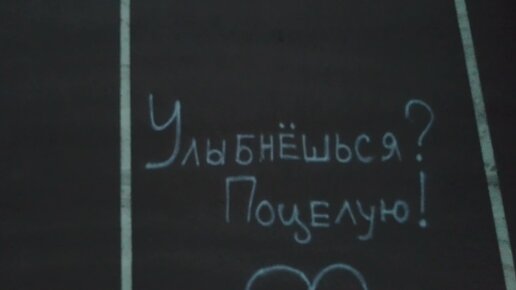 Улыбнёшься?
Поцелую!